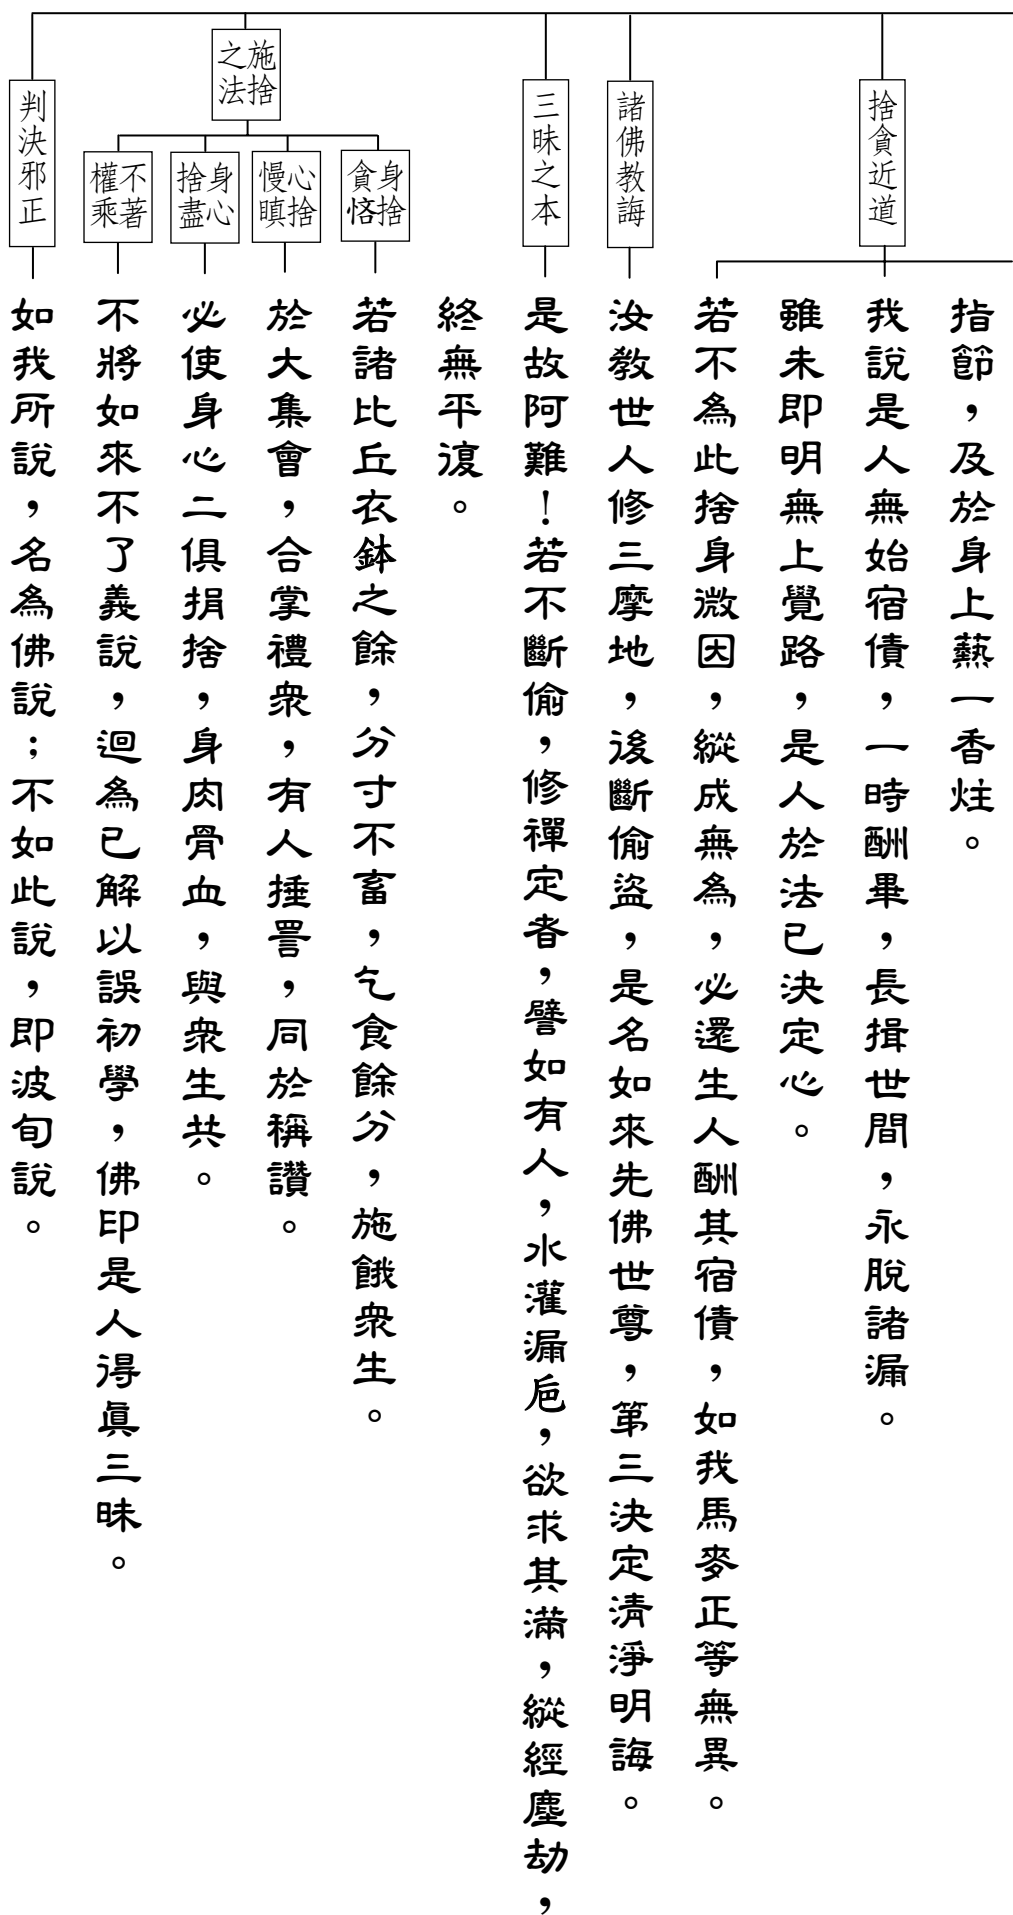 指節，及於身上爇一香炷。
捨貪近道
我說是人無始宿債，一時酬畢，長揖世間，永脫諸漏。
雖未即明無上覺路，是人於法已決定心。
若不為此捨身微因，縱成無為，必還生人酬其宿債，如我馬麥正等無異。
諸佛教誨
汝教世人修三摩地，後斷偷盜，是名如來先佛世尊，第三決定清淨明誨。
三昧之本
是故阿難！若不斷偷，修禪定者，譬如有人，水灌漏巵，欲求其滿，縱經塵劫，
終無平復。
施捨
之法
身捨
貪悋
若諸比丘衣鉢之餘，分寸不畜，乞食餘分，施餓衆生。
心捨
慢瞋
於大集會，合掌禮衆，有人捶詈，同於稱讚。
身心
捨盡
必使身心二俱捐捨，身肉骨血，與衆生共。
不著
權乘
不將如來不了義說，迴為已解以誤初學，佛印是人得真三昧。
判決邪正
如我所說，名為佛說；不如此說，即波旬說。